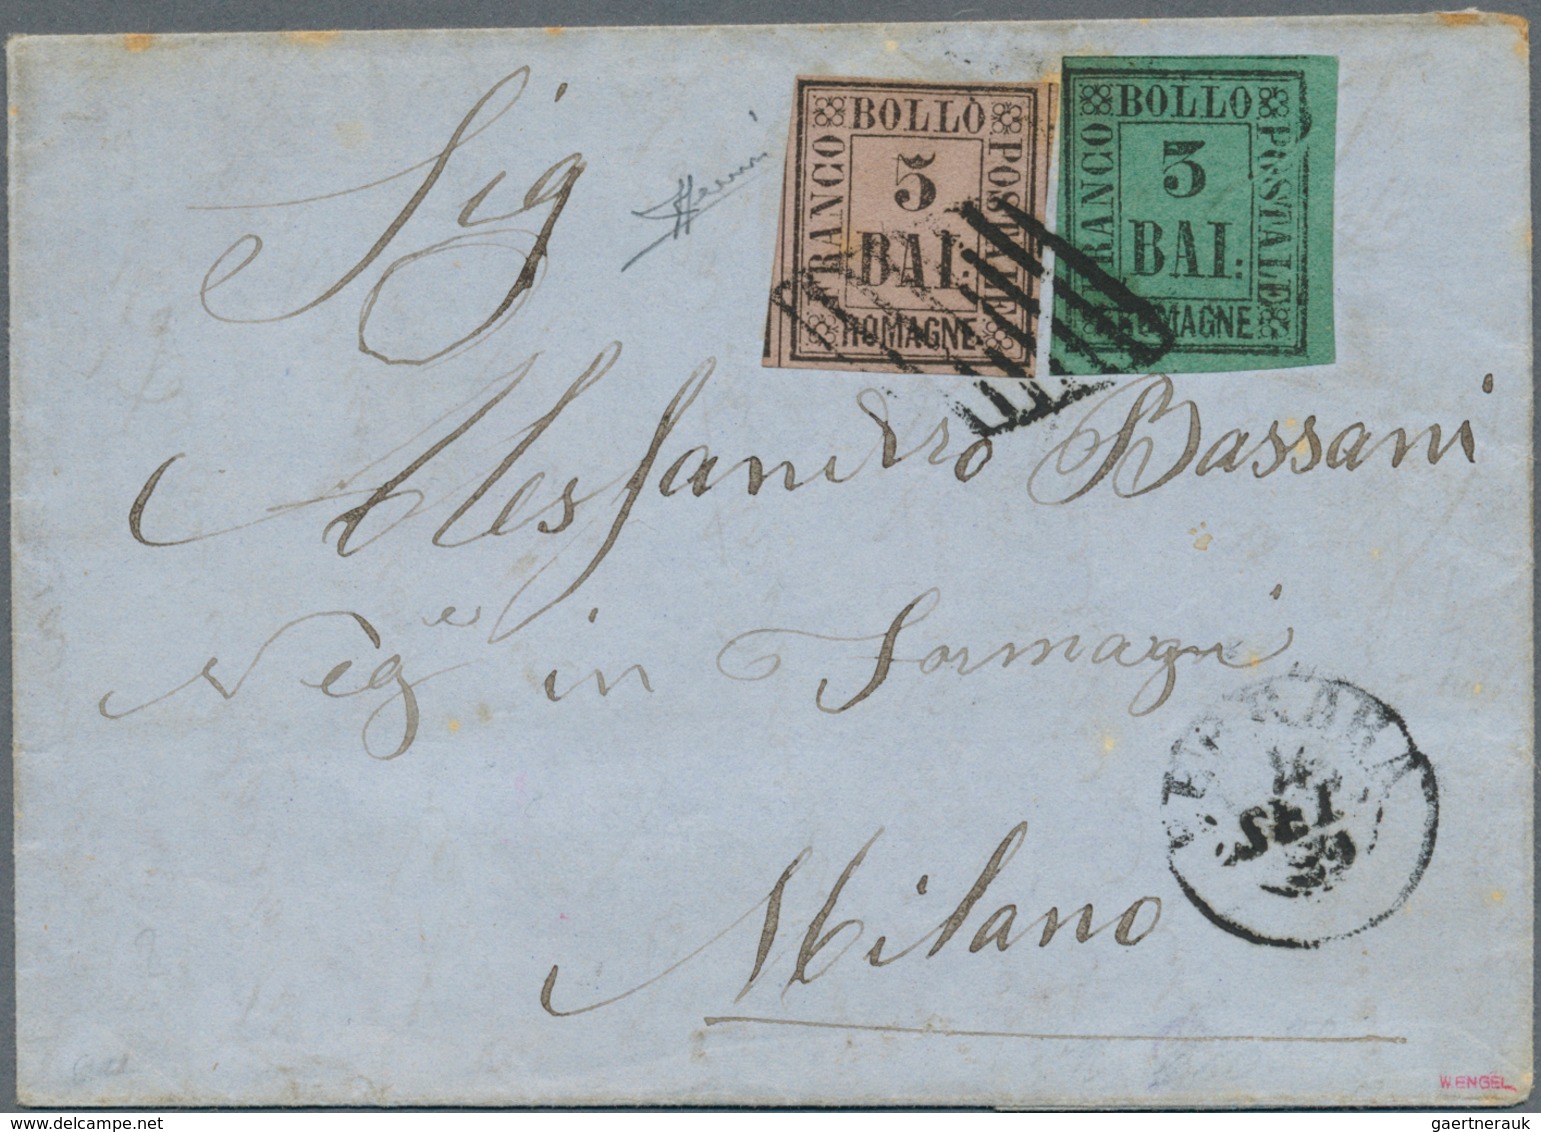 Sig
Alessandro Bassani
Neg.e in Formagi
Milano
BOLLO
FRANCO
POSTALE
5
BAI:
ROMAGNE
BOLLO
FRANCO
POSTALE
3
BAI:
ROMAGNE
FERRARA
SET
59
W.ENGEL
gaertnerauk // delcampe.net